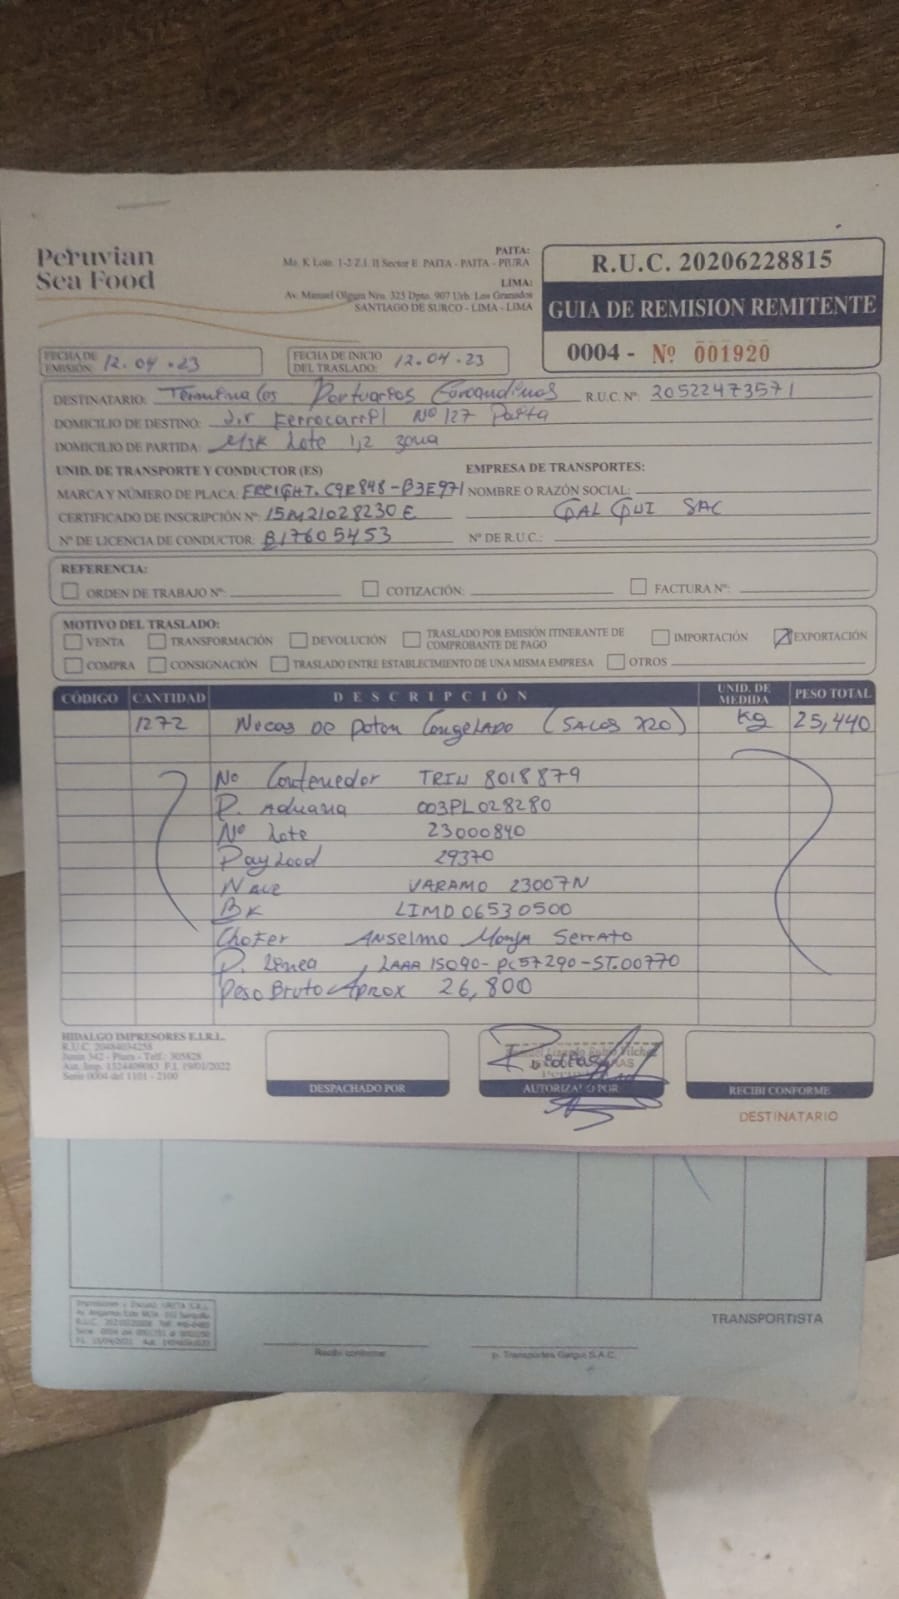 Peruvian
Sea Food
PAITA:
Mz. K Lote. 1-2 Z.I. II Sector E PAITA - PAITA - PIURA
LIMA:
Av. Manuel Olguin Nro. 325 Dpto. 907 Urb. Los Granados
SANTIAGO DE SURCO - LIMA - LIMA
R.U.C. 20206228815
GUIA DE REMISION REMITENTE
0004 - Nº 001920
FECHA DE EMISIÓN: 12.04.23
FECHA DE INICIO DEL TRASLADO: 12.04.23
DESTINATARIO: Terminales Portuarios Euroandinos R.U.C. Nº: 20522473571
DOMICILIO DE DESTINO: Jir Ferrocarril Nº 127 Paita
DOMICILIO DE PARTIDA: Lote 1,2 zona
UNID. DE TRANSPORTE Y CONDUCTOR (ES) EMPRESA DE TRANSPORTES:
MARCA Y NÚMERO DE PLACA: FREIGHT. C9R848-B3E971 NOMBRE O RAZÓN SOCIAL:
CERTIFICADO DE INSCRIPCIÓN Nº: 15M21028230E SAC
Nº DE LICENCIA DE CONDUCTOR: B17605453 Nº DE R.U.C.:
REFERENCIA:
ORDEN DE TRABAJO Nº: COTIZACIÓN: FACTURA Nº:
MOTIVO DEL TRASLADO:
VENTA TRANSFORMACIÓN DEVOLUCIÓN TRASLADO POR EMISIÓN ITINERANTE DE COMPROBANTE DE PAGO IMPORTACIÓN EXPORTACIÓN
COMPRA CONSIGNACIÓN TRASLADO ENTRE ESTABLECIMIENTO DE UNA MISMA EMPRESA OTROS
CÓDIGO CANTIDAD DESCRIPCIÓN UNID. DE MEDIDA PESO TOTAL
1272 De Poton Congelado (SACOS X20) Kg 25,440
No Contenedor TRIU 8018879
P. Aduana 003PL028280
Nº Lote 23000840
PayLoad 29370
Nave VARAMO 23007N
BK LIMD06530500
Chofer Anselmo Serrato
P. Linea LAAA 15090-PC57290-ST.00770
Peso Bruto Aprox 26,800
HIDALGO IMPRESORES E.I.R.L.
R.U.C. 20484034258
Junin 342 - Piura - Telf.: 305828
Aut. Imp. 1324409083 F.I. 19/01/2022
Serie 0004 del 1101 - 2100
DESPACHADO POR
AUTORIZADO POR
RECIBI CONFORME
DESTINATARIO
TRANSPORTISTA
Recibi conforme
p. Transportes Galqui S.A.C.